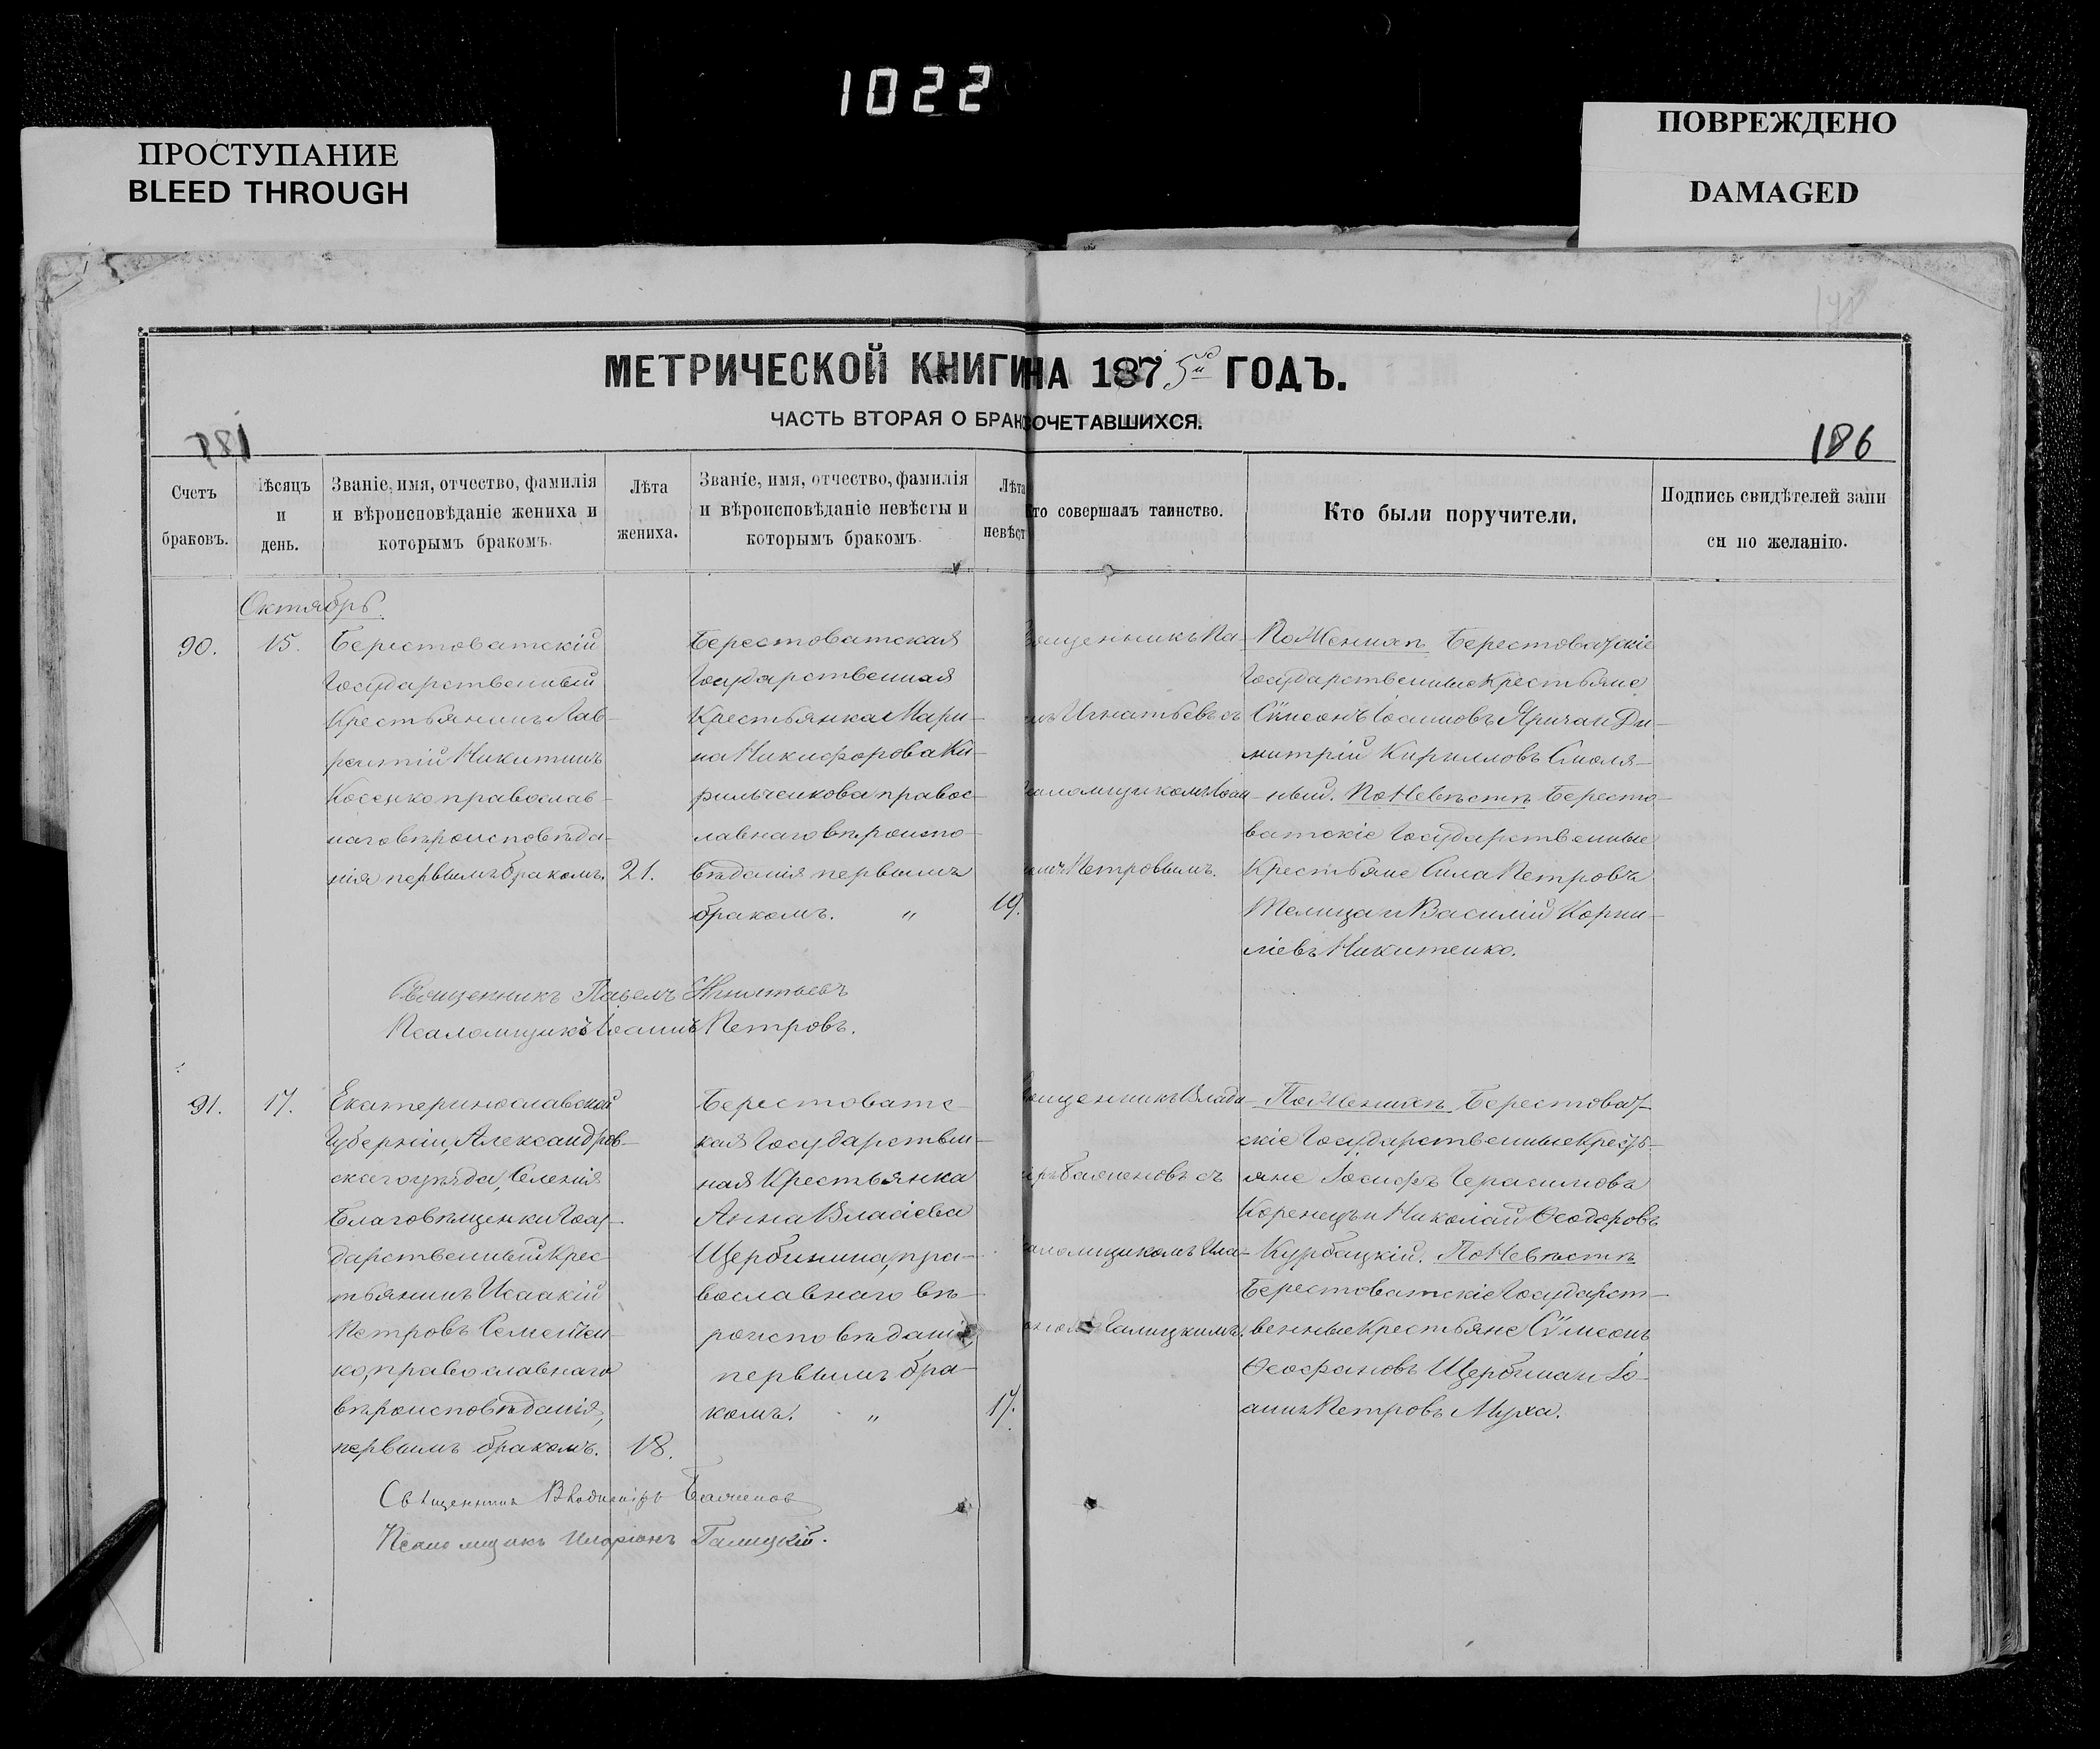 1022
ПРОСТУПАНИЕ
BLEED THROUGH
ПОВРЕЖДЕНО
DAMAGED
МЕТРИЧЕСКОЙ КНИГИ НА 1875й ГОДЪ.
ЧАСТЬ ВТОРАЯ О БРАКОСОЧЕТАВШИХСЯ.
186
Счетъ
браковъ.
Мѣсяцъ
и
день.
Званіе, имя, отчество, фамилія
и вѣроисповѣданіе жениха и
которымъ бракомъ.
Лѣта
жениха.
Званіе, имя, отчество, фамилія
и вѣроисповѣданіе невѣсты и
которымъ бракомъ.
Лѣта
невѣст
то совершалъ таинство.
Кто были поручители.
Подпись свидѣтелей запи
си по желанію.
Октябрь
90.
15.
Берестоватскій
Государственный
Крестьянинъ Лав-
рентій Никитинъ
Косенко православ-
наго вѣроисповѣда-
нія первымъ бракомъ.
21.
Берестоватская
Государственная
Крестьянка Мари-
на Никифорова Ки-
рильченкова правос-
лавнаго вѣроиспо-
вѣданія первымъ
бракомъ. "
19.
вященникъ Па-
лъ Игнатьевъ съ
саломщикомъ Іоан-
номъ Петровымъ.
По Женихѣ Берестоватскіе
Государственные Крестьяне
Сѵмеонъ Іосиповъ Яричъ и Ди-
митрій Кирилловъ Смоля-
ный. По Невѣстѣ Бересто-
ватскіе Государственные
Крестьяне Сила Петровъ
Телица и Василій Корни-
ліевъ Никитенко.
Священникъ Павелъ Игнатьевъ
Псаломщикъ Іоаннъ Петровъ.
91.
17.
Екатеринославской
Губерніи, Александров-
скаго уѣзда, Селенія
Благовѣщенки Госу-
дарственный Крес
тьянинъ Исаакій
Петровъ Семетен-
ко, православнаго
вѣроисповѣданія,
первымъ бракомъ.
18.
Берестоватс-
кая Государствен-
ная Крестьянка
Анна Власіева
Щербинина, пра-
вославнаго вѣ-
роисповѣданія
первымъ бра-
комъ. "
17.
вященникъ Влади-
іръ Баяненовъ съ
саломщикомъ Ила-
ономъ Галицкимъ.
По Женихѣ Берестоват-
скіе Государственные Кресть-
яне Іосифъ Герасимовъ
Коренецъ и Николай Ѳеодоровъ
Курбацкій. По Невѣстѣ
Берестоватскіе Государст-
венные Крестьяне Сѵмеонъ
Ѳеофановъ Щербина и Іо-
аннъ Петровъ Муха.
Священникъ Владиміръ
Псаломщикъ Иларіонъ Галицкій.